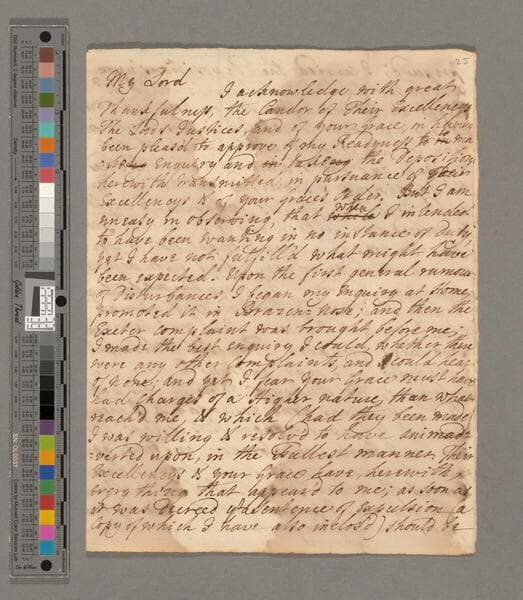 25
My Lord
I acknowledge, with great
Thankfulness, the Candor of Their Excellencys
The Lords Justices, and of your grace, in having
been pleas'd to approve of my Readyness to ma
Enquiry and in the Deposition
herewith transmitted, in pursuance of Their
Excellencys & of your grace's Order. But I am
uneasy in observing, that when I intended
to have been wanting in no instance of Duty,
yet I have not fulfill'd what might have
been expected. Upon the first general rumour
of Disturbances, I began my Enquiry at Home,
promoted it in Brazen nose; and then the
Exeter complaint was brought before me;
I made the best enquiry I could, whether there
were any other Complaints, and I could hear
of none; and yet I fear your Grace must have
had Charges of a Higher nature, than what
reach'd me, & which (had they been made)
I was willing & resolv'd to have animad-
verted upon, in the fullest manner. Their
Excellencys & your Grace have, herewith
every thing that appear'd to me; as soon as
it was Decreed a Sentence of Expulsion (a
Copy of which I have also inclos'd) should be